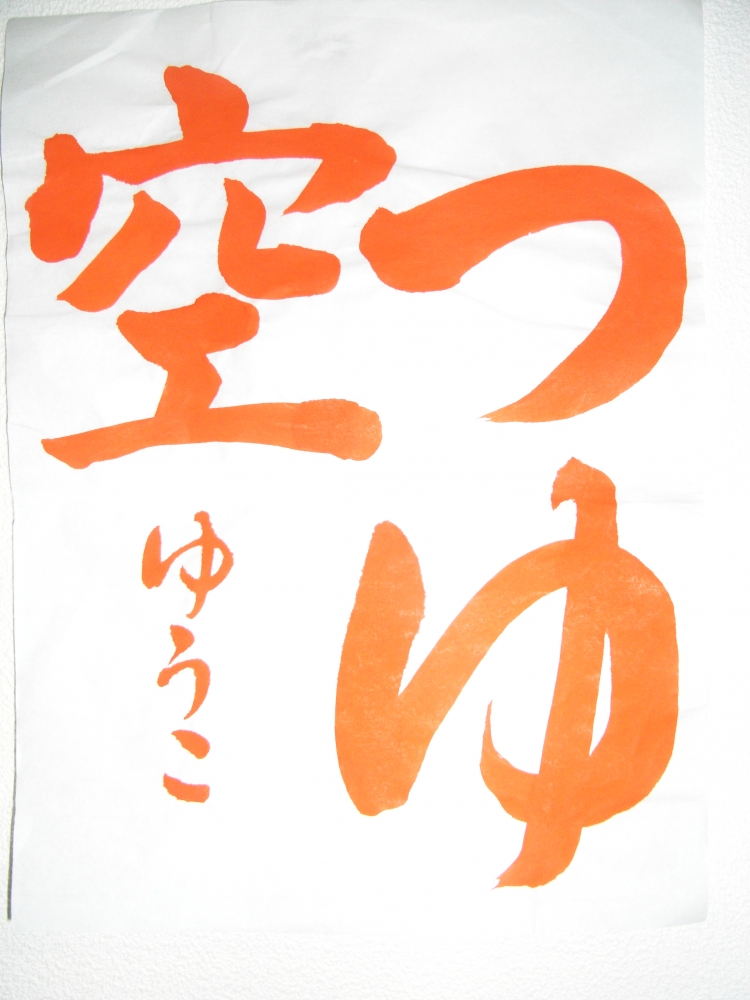 つゆ
空
ゆうこ